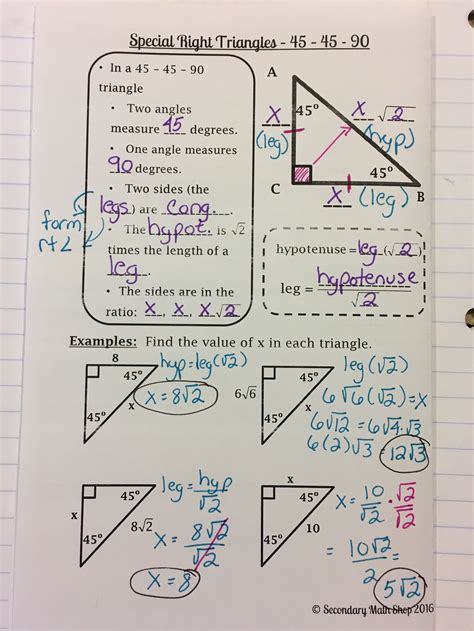 Special Right Triangles - 45 - 45 - 90
• In a 45 – 45 – 90
triangle
• Two angles
measure 45 degrees.
• One angle measures
90 degrees.
• Two sides (the
legs) are cong.
form
rt ∠
• The hypot. is √2
times the length of a
leg.
• The sides are in the
ratio: x, x, x√2
A
45°
x
(leg)
x √2
(hyp)
45°
C
x (leg)
B
hypotenuse = leg (√2)
leg = hypotenuse
√2
Examples: Find the value of x in each triangle.
8
45°
45°
x
hyp=leg(√2)
x = 8√2
6√6
45°
45°
x
leg(√2)
6√6(√2)=x
6√12 = 6√4·√3
6(2)√3 = 12√3
x
45°
45°
8√2
leg = hyp
√2
x = 8√2
√2
x = 8
x
45°
45°
10
x = 10 · √2
√2 √2
= 10√2
2
5√2
© Secondary Math Shop 2016